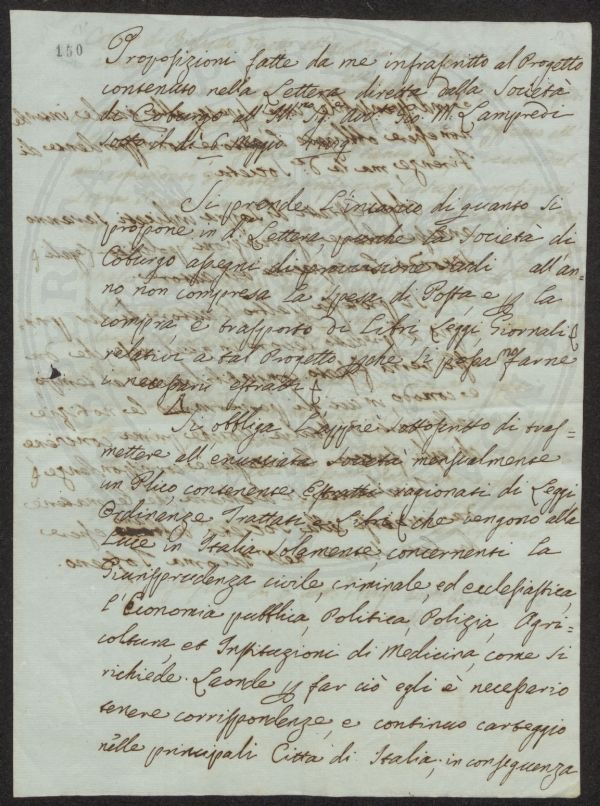 150
Proposizioni fatte da me infrascritto al Progetto
contenuto nella Lettera diretta dalla Società
di Coburgo all' M. Sig. Avv. Gio. M. Lampredi
sotto il dì 6 Maggio
Si prende l'incarico di quanto si
propone in d.a Lettera, purché la Società di
Coburgo assegni scudi all'an=
no non compresa la spesa di Posta, e p la
compra, e trasporto di Libri, Leggi Giornali
relativi a tal Progetto, pche si possano farne
i necessarii estratti.
Si obbliga l'appiè sottoscritto di tras=
mettere all'enunciata Società mensualmente
un Plico, contenente Estratti ragionati di Leggi
Ordinanze, Trattati, e Libri che vengono alla
Luce in Italia solamente, concernenti la
Giurisprudenza civile, criminale, ed ecclesiastica,
l'Economia pubblica, Politica, Polizia, Agri=
coltura, et Instituzioni di Medicina, come si
richiede. Laonde p far ciò egli è necessario
tenere corrisspondenze, e continuo carteggio
nelle principali Città di Italia; in conseguenza